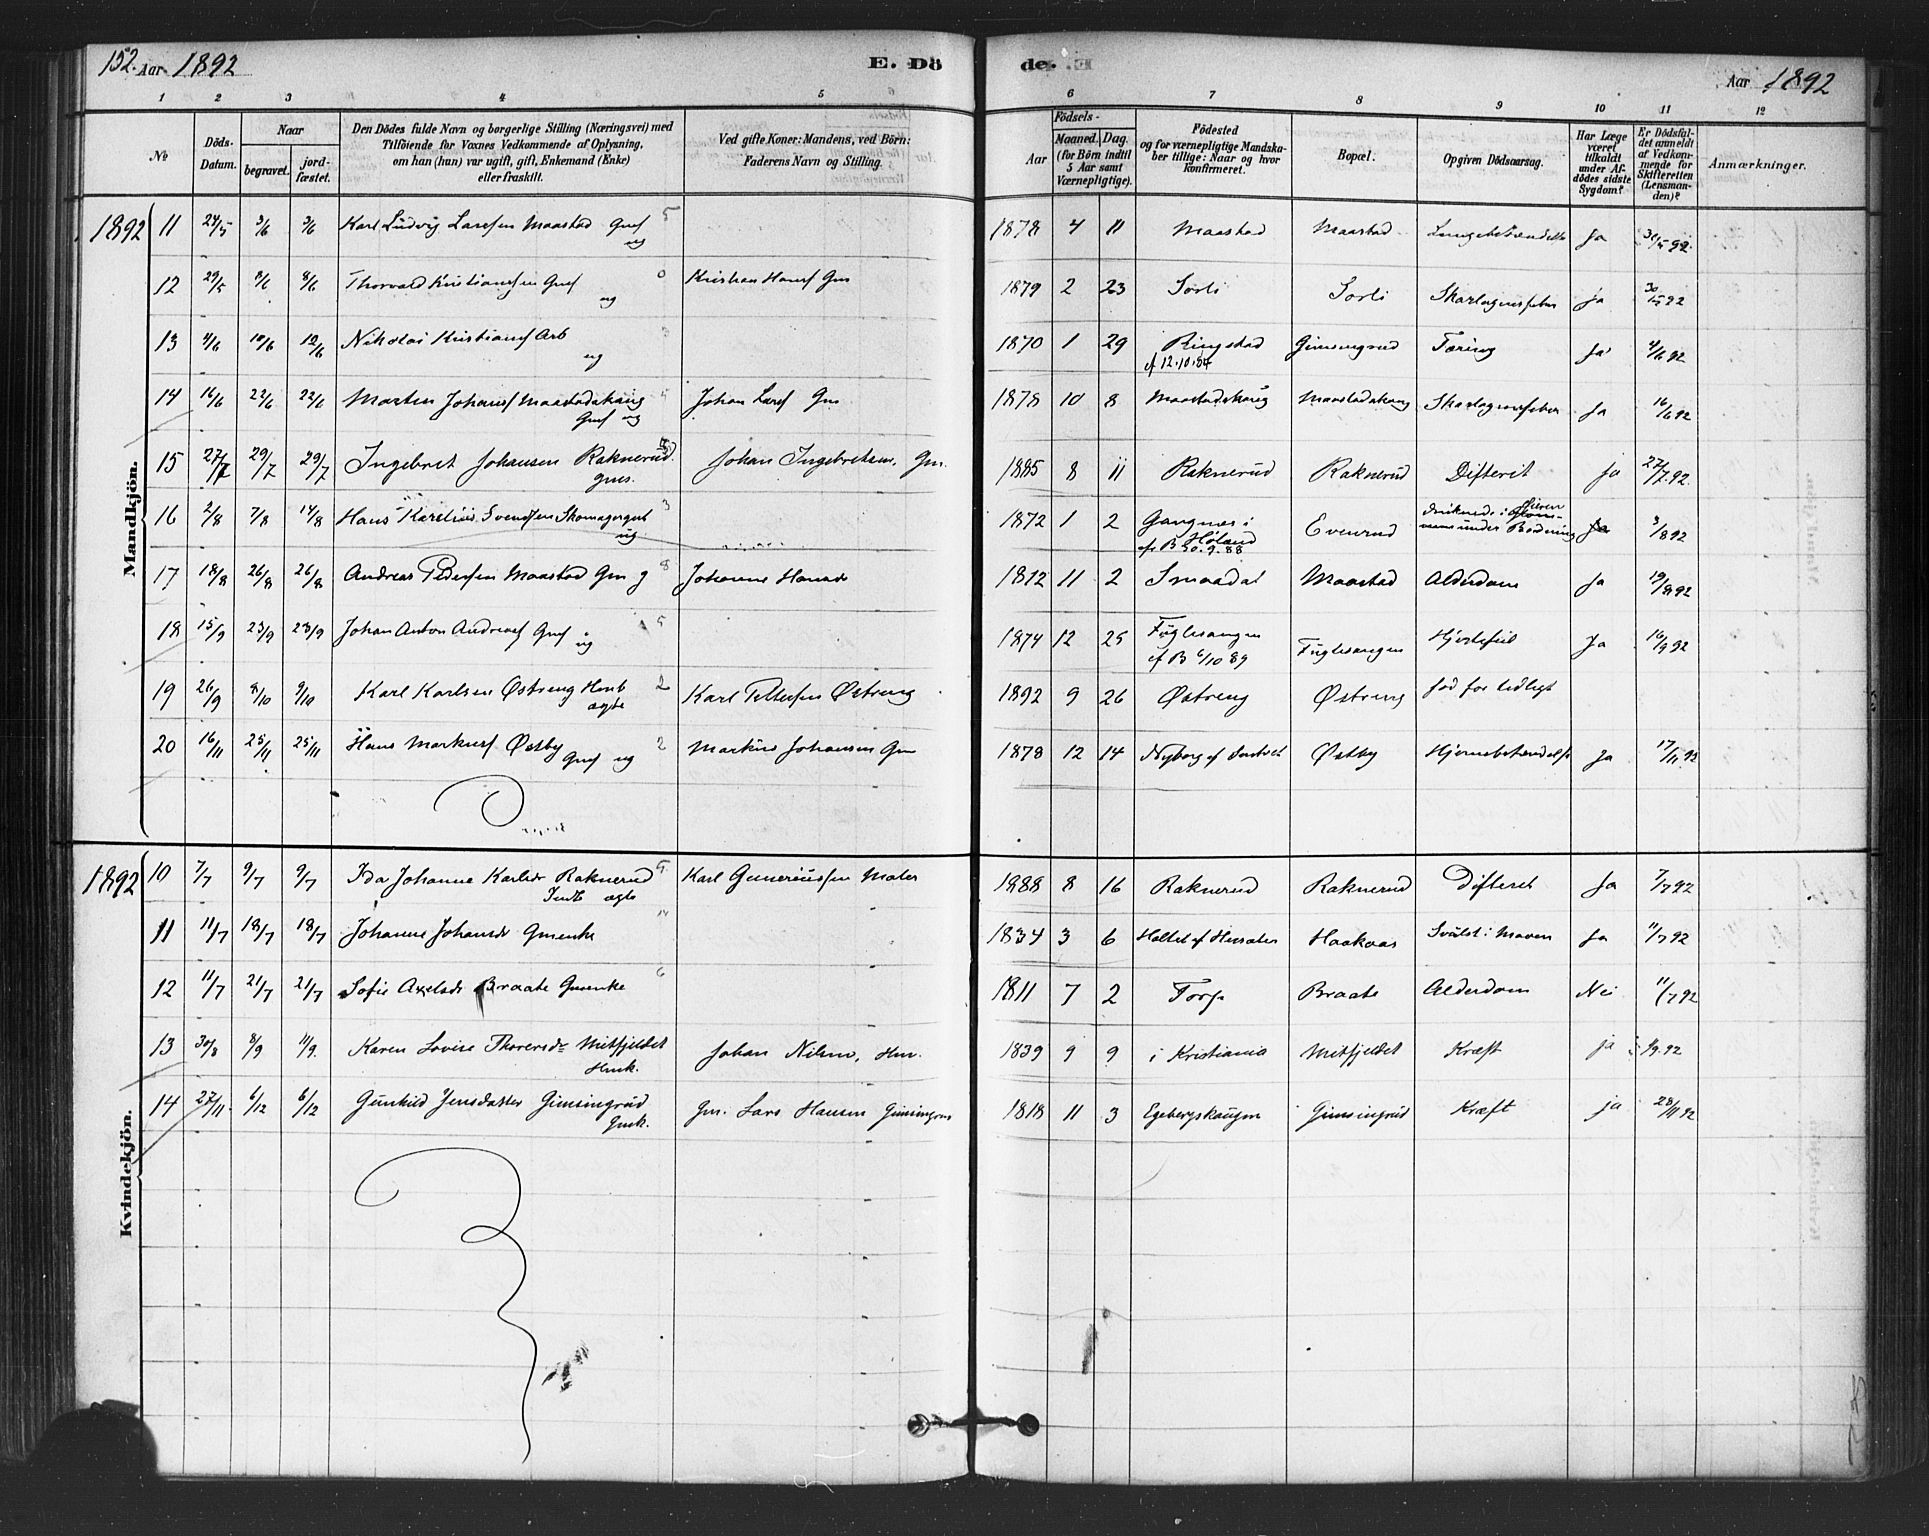 152. Aar 1892 E. Döde. Aar 1892
1 2 3 4 5 6 7 8 9 10 11 12
No
Döds-Datum.
Naar
begravet.
jord-fæstet.
Den Dödes fulde Navn og borgerlige Stilling (Næringsvei) med
Tilföiende for Voxnes Vedkommende af Oplysning,
om han (hun) var ugift, gift, Enkemand (Enke)
eller fraskilt.
Ved gifte Koner: Mandens, ved Börn:
Faderens Navn og Stilling.
Födsels-
Aar
Maaned. Dag.
(for Börn indtil
5 Aar samt
Værnepligtige).
Födested
og for værnepligtige Mandska-
ber tillige: Naar og hvor
konfirmeret.
Bopæl.
Opgiven Dödsaarsag.
Har Læge
været
tilkaldt
under Af-
dödes sidste
Sygdom?
Er Dödsfal-
det anmeldt
af Vedkom-
mende for
Skifteretten
(Lensman-
den)?
Anmærkninger.
Mandkjön.
1892 11 24/5 3/6 3/6 Karl Ludvig Larssen Maastad Gmsf ug 5 1878 4 11 Maastad Maastad Lungebetændelse Ja 30/5 92
12 29/5 8/6 8/6 Thorvald Kristiansen Gmsf ug 0 Kristian Hansf Gm 1879 2 23 Sorli Sorli Skarlagensfeber ja 30/5 92
13 4/6 10/6 12/6 Nikolai Kristiansf Arb ug 3 1870 1 29 Ringstad
cf 12.10.84 Gimsingrud Tæring Ja 4/6 92
14 16/6 22/6 22/6 Martin Johansf Maastadskaug Gmsf ug Johan Larsf Gm 1878 10 8 Maastadskaug Maastadskaug Skarlagensfeber Ja 16/6 92
15 27/7 29/7 29/7 Ingebret Johansen Raknerud. gms. Johan Ingebretsen, Gm. 1885 8 11 Raknerud Raknerud Difterit ja 27/7 92.
16 2/8 7/8 14/8 Hans Karelius Svendsen Skomagergut ug. 3 1872 1 2 Gangnes i Höland
cf B 30.9.88 Evenrud druknede i under Badning Ja 3/8 92
17 18/8 26/8 26/8 Andreas Pedersen Maastad Gm g 8 Johanne Hansdr 1812 11 2 Smaadal Maastad Alderdom Ja 19/8 92
18 15/9 23/9 23/9 Johan Anton Andreasf Gmsf ug 5 1874 12 25 Fuglesangen
cf B 6/10 89 Fuglesangen Hjertefeil Ja 16/9 92
19 26/9 8/10 9/10 Karl Karlsen Østreng Hmb ægte 2 Karl Pettersen Østreng 1892 9 26 Østreng Østreng fød for tidligt
20 16/11 25/11 25/11 Hans Markusf Østby Gmsf ug 2 Markus Johansen Gm 1878 12 14 Nyborg af Østby Hjernebetændelse Ja 17/11 92
Kvindekjön.
1892 10 7/7 9/7 9/7 Ida Johanne Karlsdr Raknerud ægte 5 Karl Gunerius­sen Maler 1888 8 16 Raknerud Raknerud Difterit Ja 7/7 92
11 11/7 18/7 18/7 Johanne Johansdr Gmenke 1834 3 6 Holtet af Haakaas Svulst i Maven Ja 11/7 92
12 11/7 21/7 21/7 Sofie Axelsdr Braate Gmenke 6 1811 7 2 Torp Braate Alderdom Nei 11/7 92
13 30/8 8/9 11/9. Karen Lovise Thoresdr Mitfjeldet Hmk. Johan Nilsen, Hm. 1839 9 9 i Kristiania Mitfjeldet Kræft ja 1/9 92
14 27/11. 6/12 6/12 Gunhild Jensdatter Gimsingrud Gmk. Gm. Lars Hansen Gimsingrud 1818 11 3 Egebergskaugen Gimsingrud Kræft ja 28/11 92